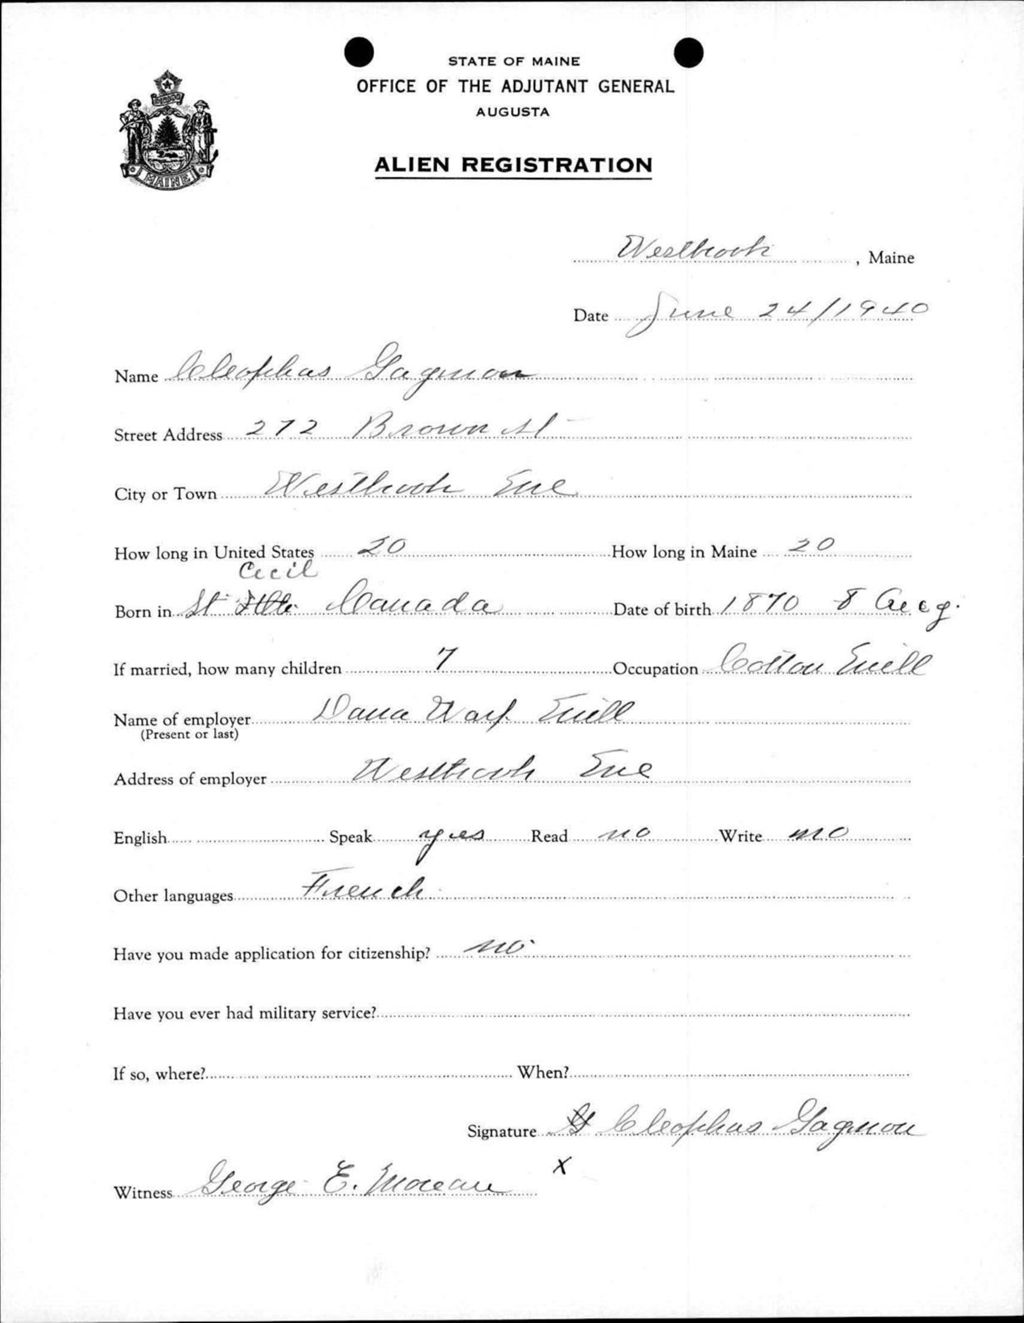 STATE OF MAINE
OFFICE OF THE ADJUTANT GENERAL
AUGUSTA
MAINE
ALIEN REGISTRATION
Westbrook, Maine
Date June 24/1940
Name Cleophas Gagnon
Street Address 272 Brown St
City or Town Westbrook Me
How long in United States 20 How long in Maine 20
Cecil
Born in St Canada Date of birth 1870 8
If married, how many children 7 Occupation Cotton Mill
Name of employer Dana Warp Mill
(Present or last)
Address of employer Westbrook Me
English Speak yes Read no Write no
Other languages French
Have you made application for citizenship? no
Have you ever had military service?
If so, where? When?
Signature Cleophas Gagnon
X
Witness George E. Moreau